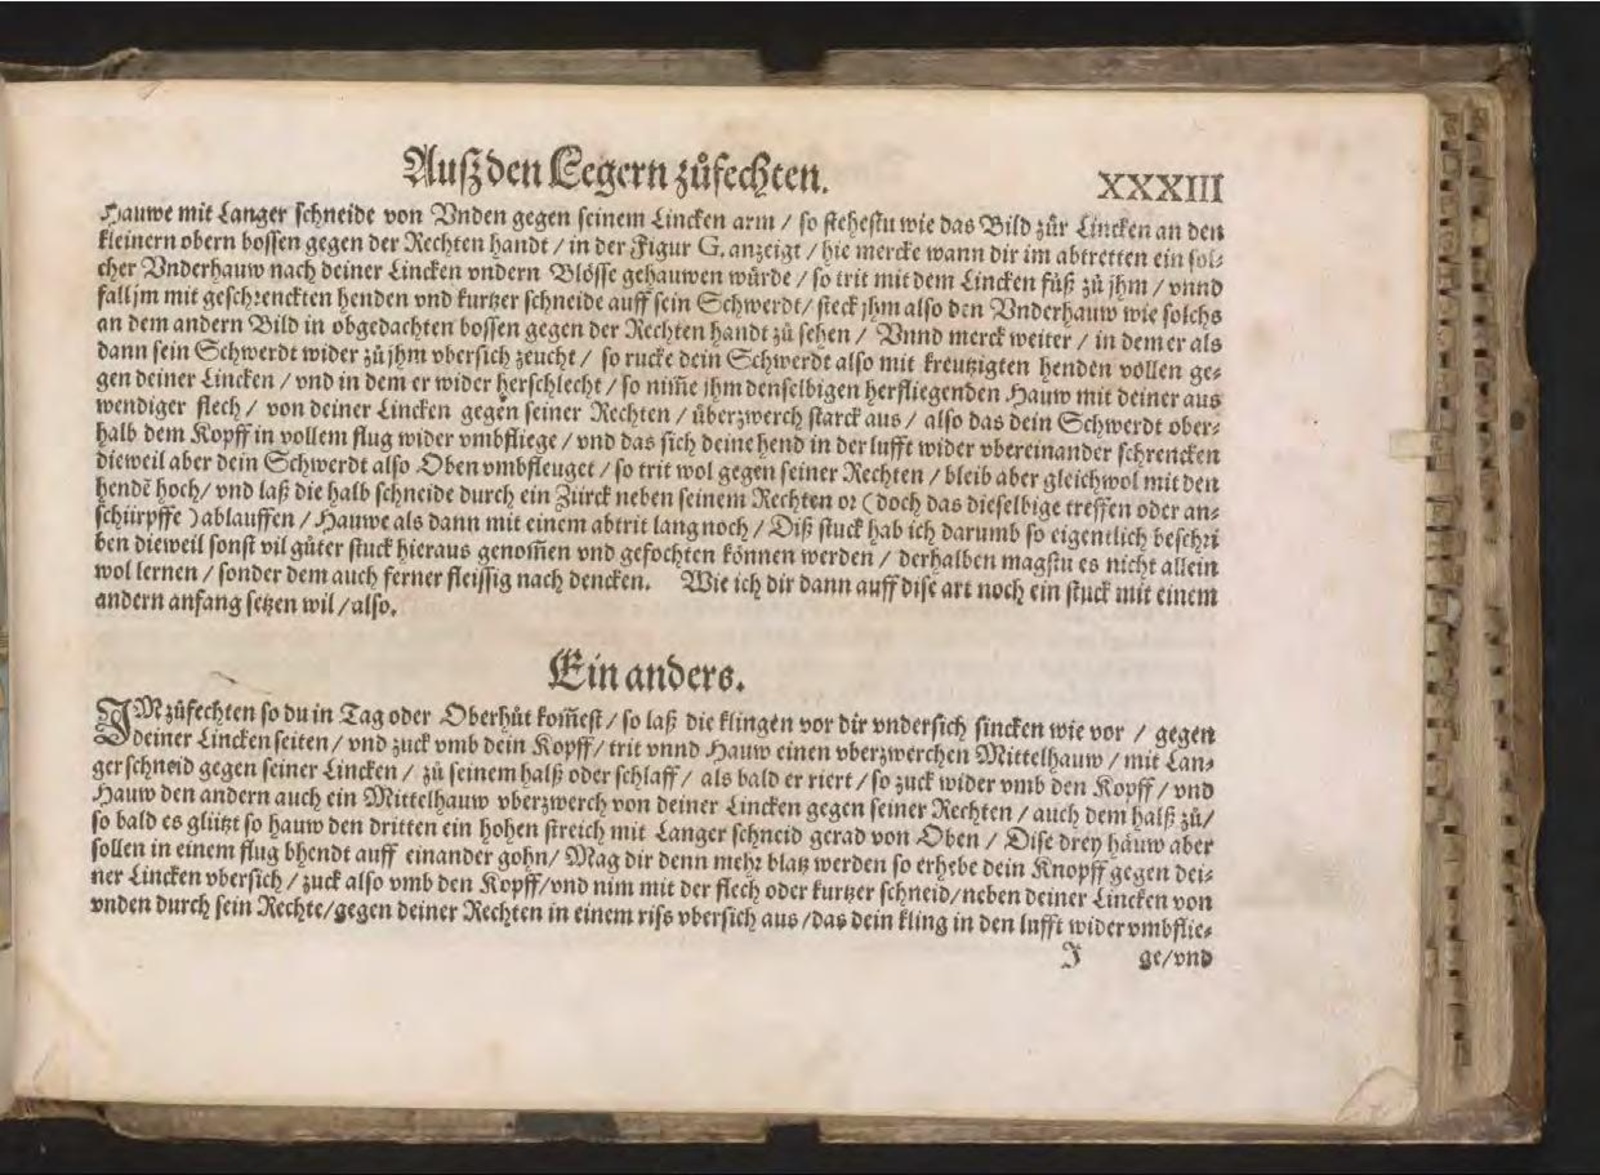 Außden Legern zůfechten.
XXXIII
Hauwe mit Langer schneide von Vnden gegen seinem Lincken arm / so stehestu wie das Bild zůr Lincken an den
kleinern obern bossen gegen der Rechten handt / in der Figur G. anzeigt / hie mercke wann dir im abtretten ein sol⸗
cher Vnderhauw nach deiner Lincken vndern Blösse gehauwen würde / so trit mit dem Lincken fůß zů jhm / vnnd
fall jm mit geschrenckten henden vnd kurtzer schneide auff sein Schwerdt / steck jhm also den Vnderhauw wie solchs
an dem andern Bild in obgedachten bossen gegen der Rechten handt zů sehen / Vnnd merck weiter / in dem er als
dann sein Schwerdt wider zů jhm vbersich zeucht / so rucke dein Schwerdt also mit kreutzigten henden vollen ge⸗
gen deiner Lincken / vnd in dem er wider herschlecht / so nim̄e jhm denselbigen herfliegenden Hauw mit deiner aus
wendiger flech / von deiner Lincken gegen seiner Rechten / überzwerch starck aus / also das dein Schwerdt ober⸗
halb dem Kopff in vollem flug wider vmbfliege / vnd das sich deine hend in der lufft wider vbereinander schrencken
dieweil aber dein Schwerdt also Oben vmbfleuget / so trit wol gegen seiner Rechten / bleib aber gleichwol mit den
hendē hoch / vnd laß die halb schneide durch ein Zürck neben seinem Rechten or ( doch das dieselbige treffen oder an⸗
schürpffe ) ablauffen / Hauwe als dann mit einem abtrit lang noch / Diß stuck hab ich darumb so eigentlich beschri
ben dieweil sonst vil gůter stuck hieraus genom̄en vnd gefochten können werden / derhalben magstu es nicht allein
wol lernen / sonder dem auch ferner fleissig nach dencken. Wie ich dir dann auff dise art noch ein stuck mit einem
andern anfang setzen wil / also.
Ein anders.
IM zůfechten so du in Tag oder Oberhůt kom̄est / so laß die klingen vor dir vndersich sincken wie vor / gegen
deiner Lincken seiten / vnd zuck vmb dein Kopff / trit vnnd Hauw einen vberzwerchen Mittelhauw / mit Lan⸗
ger schneid gegen seiner Lincken / zů seinem halß oder schlaff / als bald er riert / so zuck wider vmb den Kopff / vnd
Hauw den andern auch ein Mittelhauw vberzwerch von deiner Lincken gegen seiner Rechten / auch dem halß zů /
so bald es glützt so hauw den dritten ein hohen streich mit Langer schneid gerad von Oben / Dise drey häuw aber
sollen in einem flug bhendt auff einander gohn / Mag dir denn mehr blatz werden so erhebe dein Knopff gegen dei⸗
ner Lincken vbersich / zuck also vmb den Kopff / vnd nim mit der flech oder kurtzer schneid / neben deiner Lincken von
vnden durch sein Rechte / gegen deiner Rechten in einem riss vbersich aus / das dein kling in den lufft wider vmbflie⸗
J ge / vnd